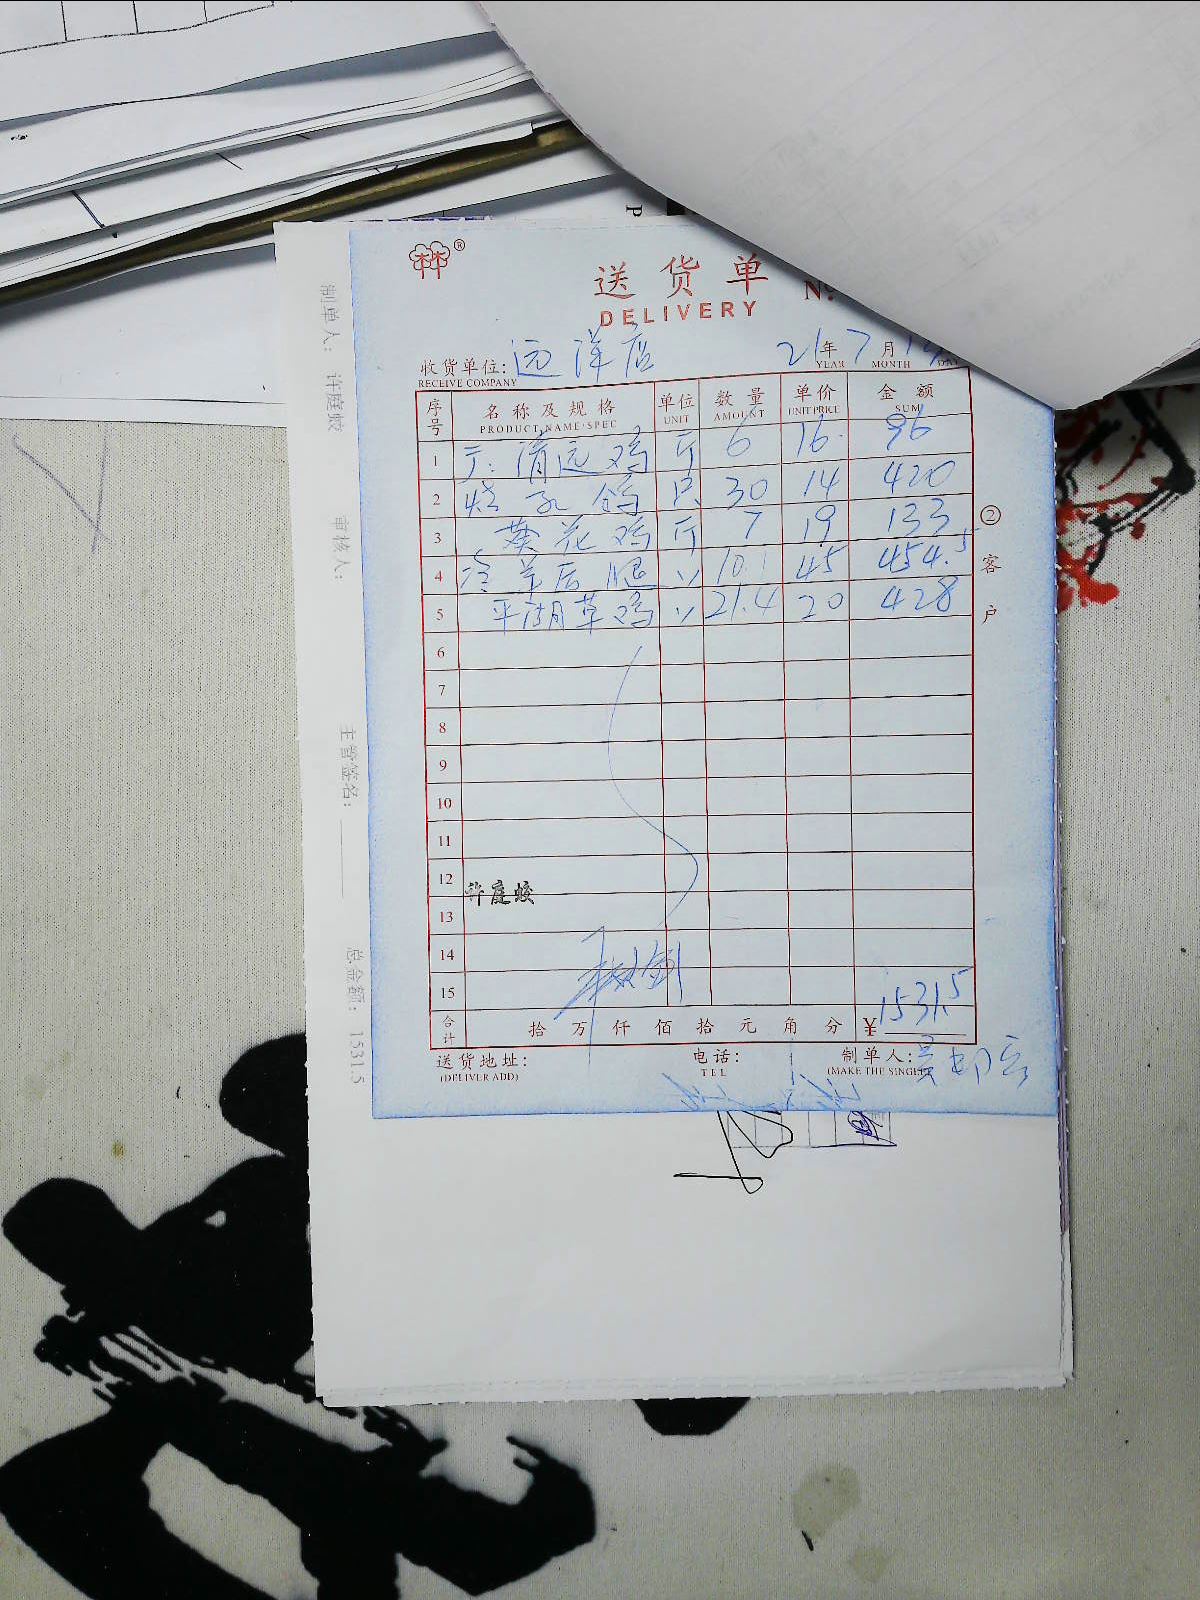 P
®
送货单 №
DELIVERY
收货单位: 远洋店 21年7月
RECEIVE COMPANY YEAR MONTH DAY
序号 名称及规格 单位 数量 单价 金额
PRODUCT NAME·SPEC UNIT AMOUNT UNIT PRICE SUM
1 清远鸡 斤 6 16 96
2 烧乳鸽 只 30 14 420
3 葵花鸡 斤 7 19 133
4 冷羊后腿 〃 10.1 45 454.5
5 平湖草鸡 〃 21.4 20 428
6
7
8
9
10
11
12
许庭蛟
13
14
15
合计 拾万仟佰拾元角分 ¥ 1531.5
送货地址: 电话: 制单人:
(DELIVER ADD) TEL (MAKE THE SINGLE)
②客户
制单人: 许庭蛟 审核人: 主管签名: 总金额: 1531.5